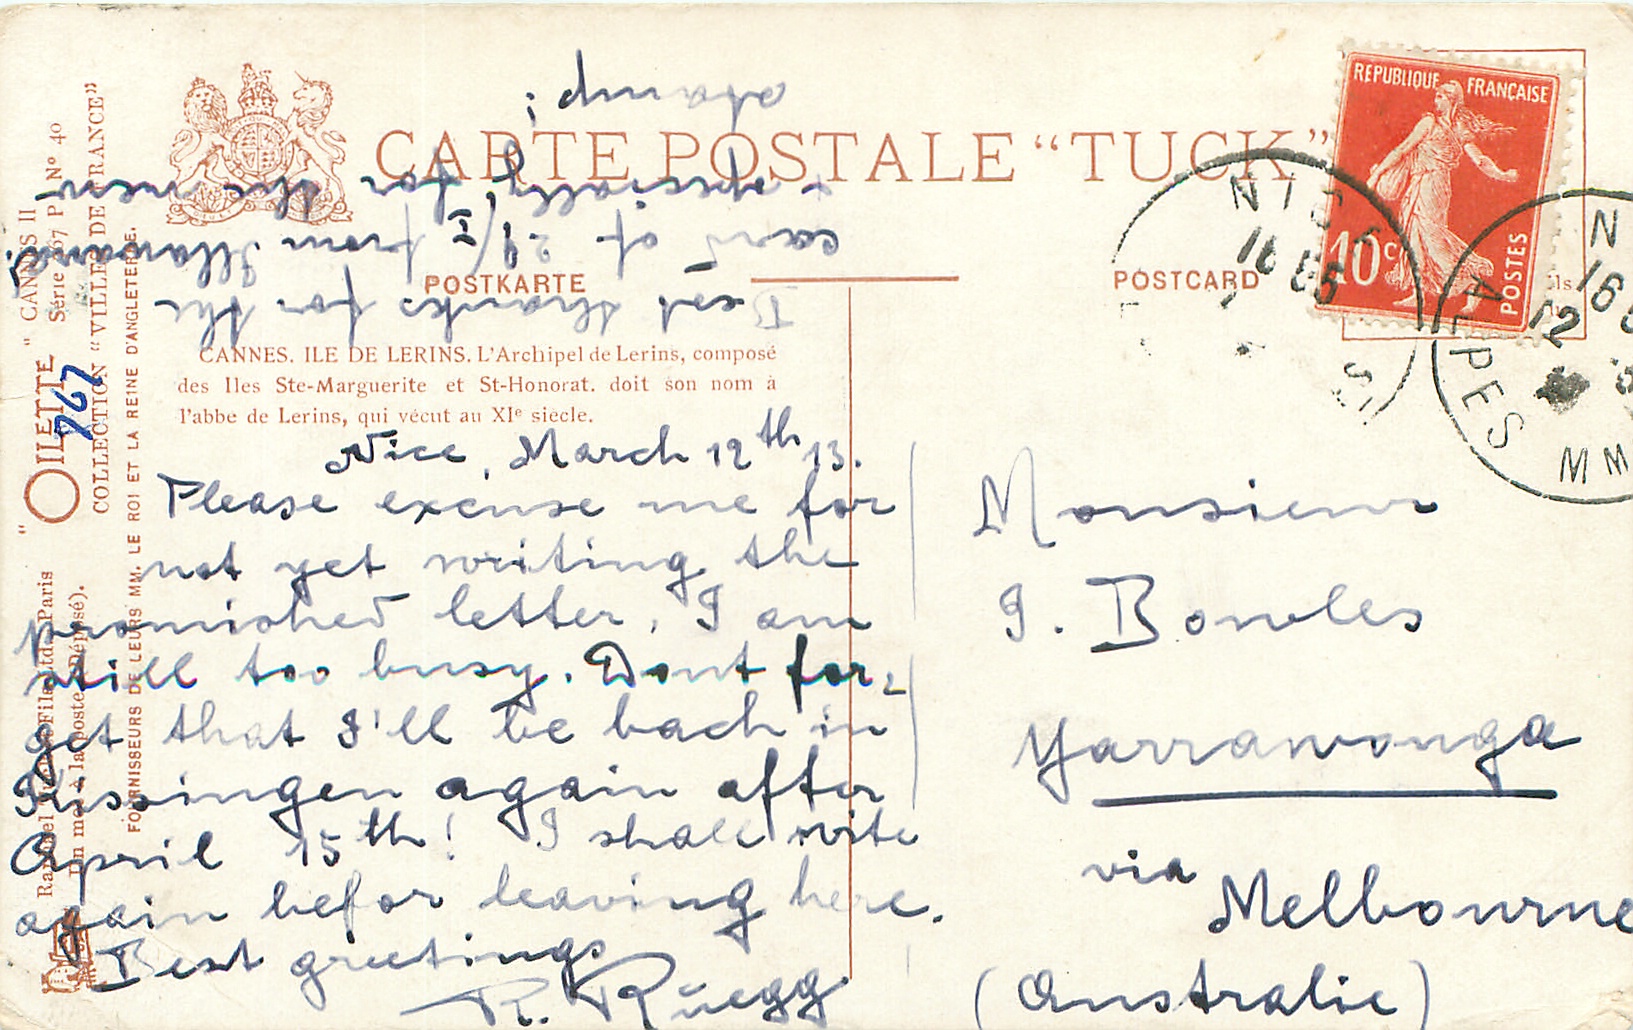 CARTE POSTALE “TUCK”
POSTKARTE
POSTCARD
CANNES. ILE DE LERINS. L'Archipel de Lerins, composé
des Iles Ste-Marguerite et St-Honorat. doit son nom à
l'abbe de Lerins, qui vécut au XIe siècle.
Nice, March 12th 13.
Please excuse me for
not yet writing the
promished letter, I am
still too busy. Dont for-
get that I'll be back in
Kissingen again after
April 15th! I shall write
again befor leaving here.
Best greetings
R. Rüegg
Best thanks for the
card of 29/I from Illawarra,
+ specially for the new
stamp!
Monsieur
I. Bowles
Yarrawonga
via Melbourne
(Australie)
REPUBLIQUE FRANÇAISE
10c
POSTES
NICE
ALPES MM
"OILETTE" "CANNES II
Série 67 P Nº 40
COLLECTION “VILLES DE FRANCE”
FOURNISSEURS DE LEURS MM. LE ROI ET LA REINE D'ANGLETERRE.
Raphael Tuck & Fils Ltd. Paris
(Un mot à la poste Déposé).